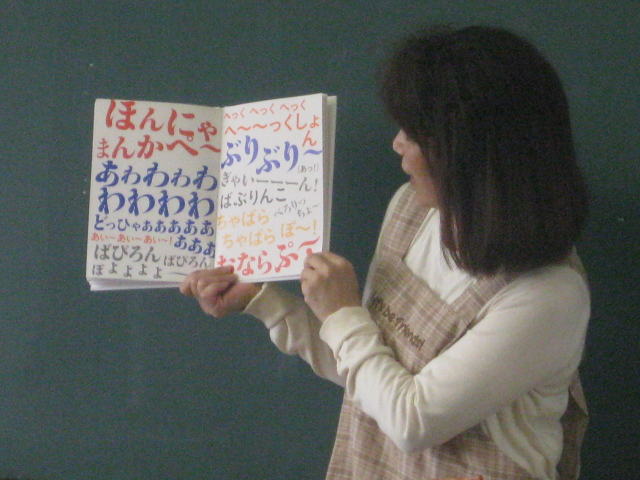 ほんにゃ
まんかぺ〜
あわわわわ
わわわわ
どっひゃあああああ
あい〜あい〜あい〜!あああ
ぱぴろん ぱぴろん
ぽよよよよ
へっく へっく へっく
へ〜〜っくしょ
ん
ぶりぶり〜
(あっ!)
ぎゃいーーーん!
ばぶりんこ
ちゃばら
ちゃばら ぽ〜!
おならぷ〜
Let's be friends!